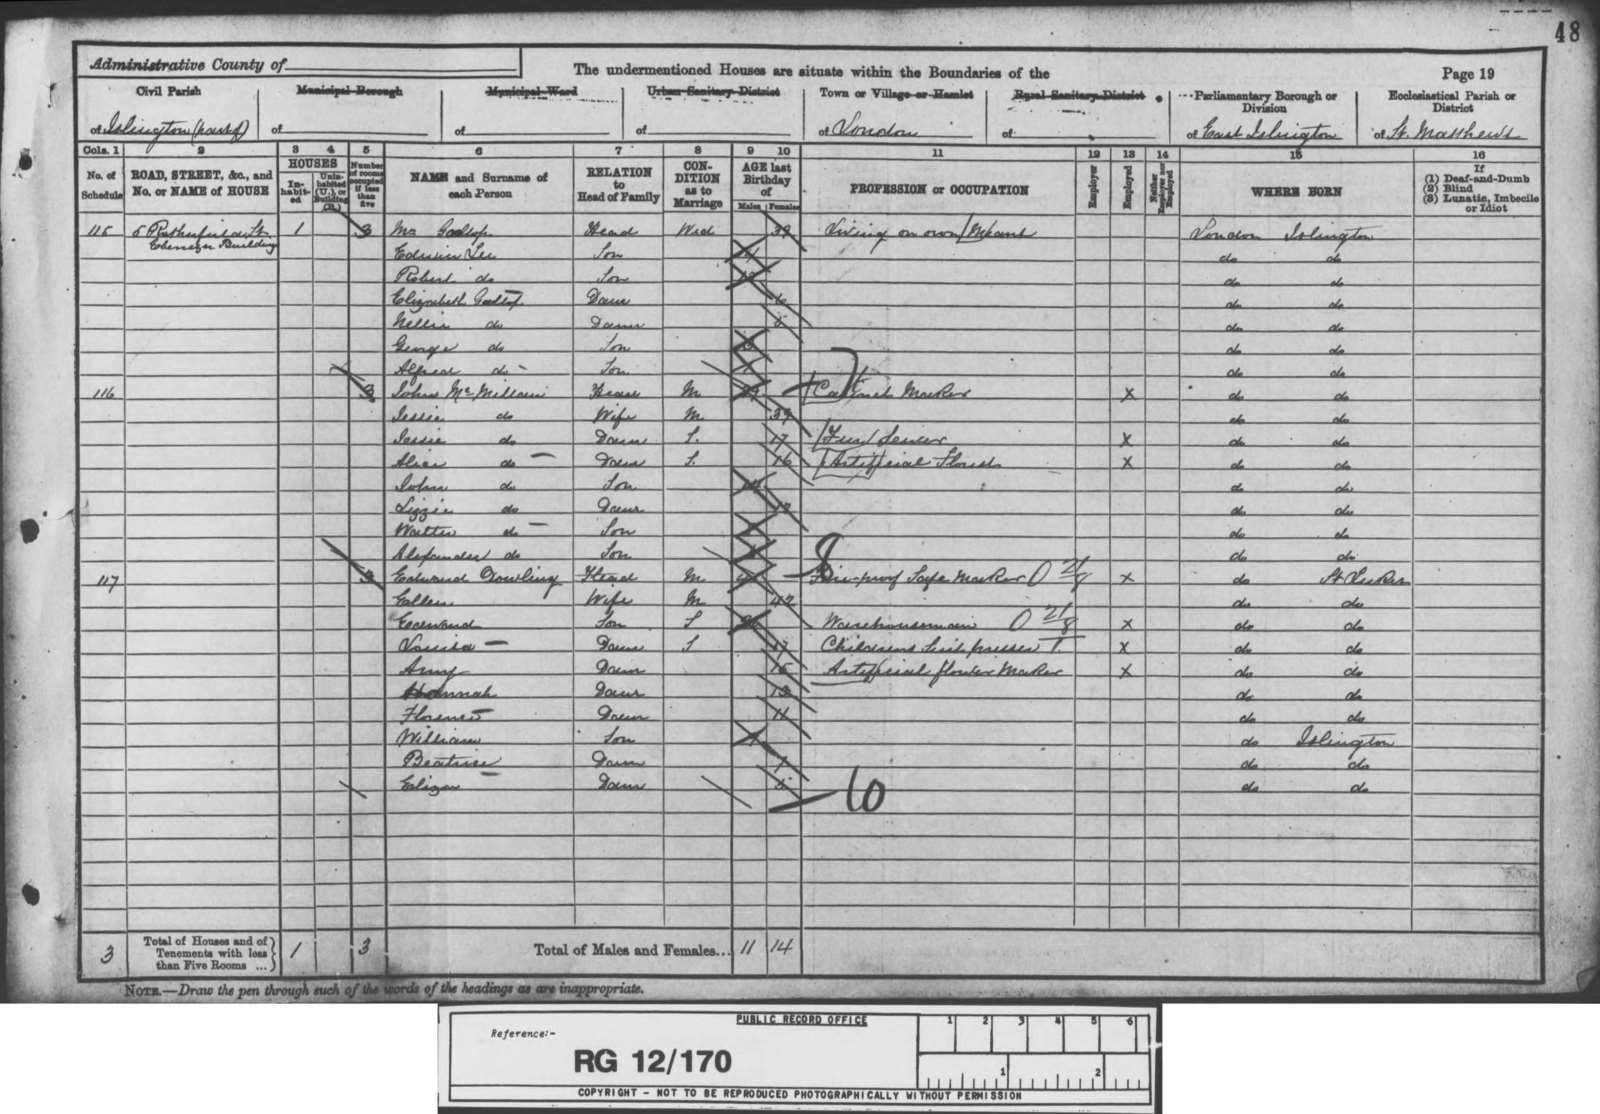 48
Administrative County of
The undermentioned Houses are situate within the Boundaries of the
Page 19
Civil Parish
Municipal Borough
Municipal Ward
Urban Sanitary District
Town or Village or Hamlet
Rural Sanitary District
Parliamentary Borough or Division
Ecclesiastical Parish or District
of Islington (part of)
of
of
of
of London
of
of East Islington
of St. Matthews
Cols. 1 2 3 4 5 6 7 8 9 10 11 12 13 14 15 16
No. of Schedule
ROAD, STREET, &c., and No. or NAME of HOUSE
HOUSES
In-habit-ed
Unin-habited (U.), or Building (B.)
Number of rooms occupied if less than five
NAME and Surname of each Person
RELATION to Head of Family
CON-DITION as to Marriage
AGE last Birthday of
Males Females
PROFESSION or OCCUPATION
Employer
Employed
Neither Employer nor Employed
WHERE BORN
If
(1) Deaf-and-Dumb
(2) Blind
(3) Lunatic, Imbecile or Idiot
115 5 St. 1 3 Head Wid 39 Living on own Means London Islington
Ebenezer Building Edwin Lee Son do do
Robert do Son do do
Elizabeth Daur 6 do do
Nellie do Daur 5 do do
George do Son do do
Alfred do Son do do
116 3 John McMillain Head M Cabinet Maker X do do
Jessie do Wife M 39 do do
Jessie do Daur S. 17 Fur Sewer X do do
Alice do Daur S. 16 Artificial Florist X do do
John do Son do do
Lizzie do Daur do do
Walter do Son do do
Alexander do Son do do
8
117 3 Edward Dowling Head M Fire-proof Safe Maker X do St Lukes
Ellen Wife M 42 do do
Edward Son S Warehouseman X do do
Louisa Daur S 17 Childrens X do do
Amy Daur 15 Artificial flower Maker X do do
Hannah Daur 13 do do
Florence Daur 11 do do
William Son do Islington
Beatrice Daur 7 do do
Eliza Daur do do
10
3 Total of Houses and of Tenements with less than Five Rooms ... 1 3 Total of Males and Females... 11 14
NOTE.—Draw the pen through such of the words of the headings as are inappropriate.
PUBLIC RECORD OFFICE
Reference:-
RG 12/170
1 2 3 4 5 6
1 2
COPYRIGHT - NOT TO BE REPRODUCED PHOTOGRAPHICALLY WITHOUT PERMISSION